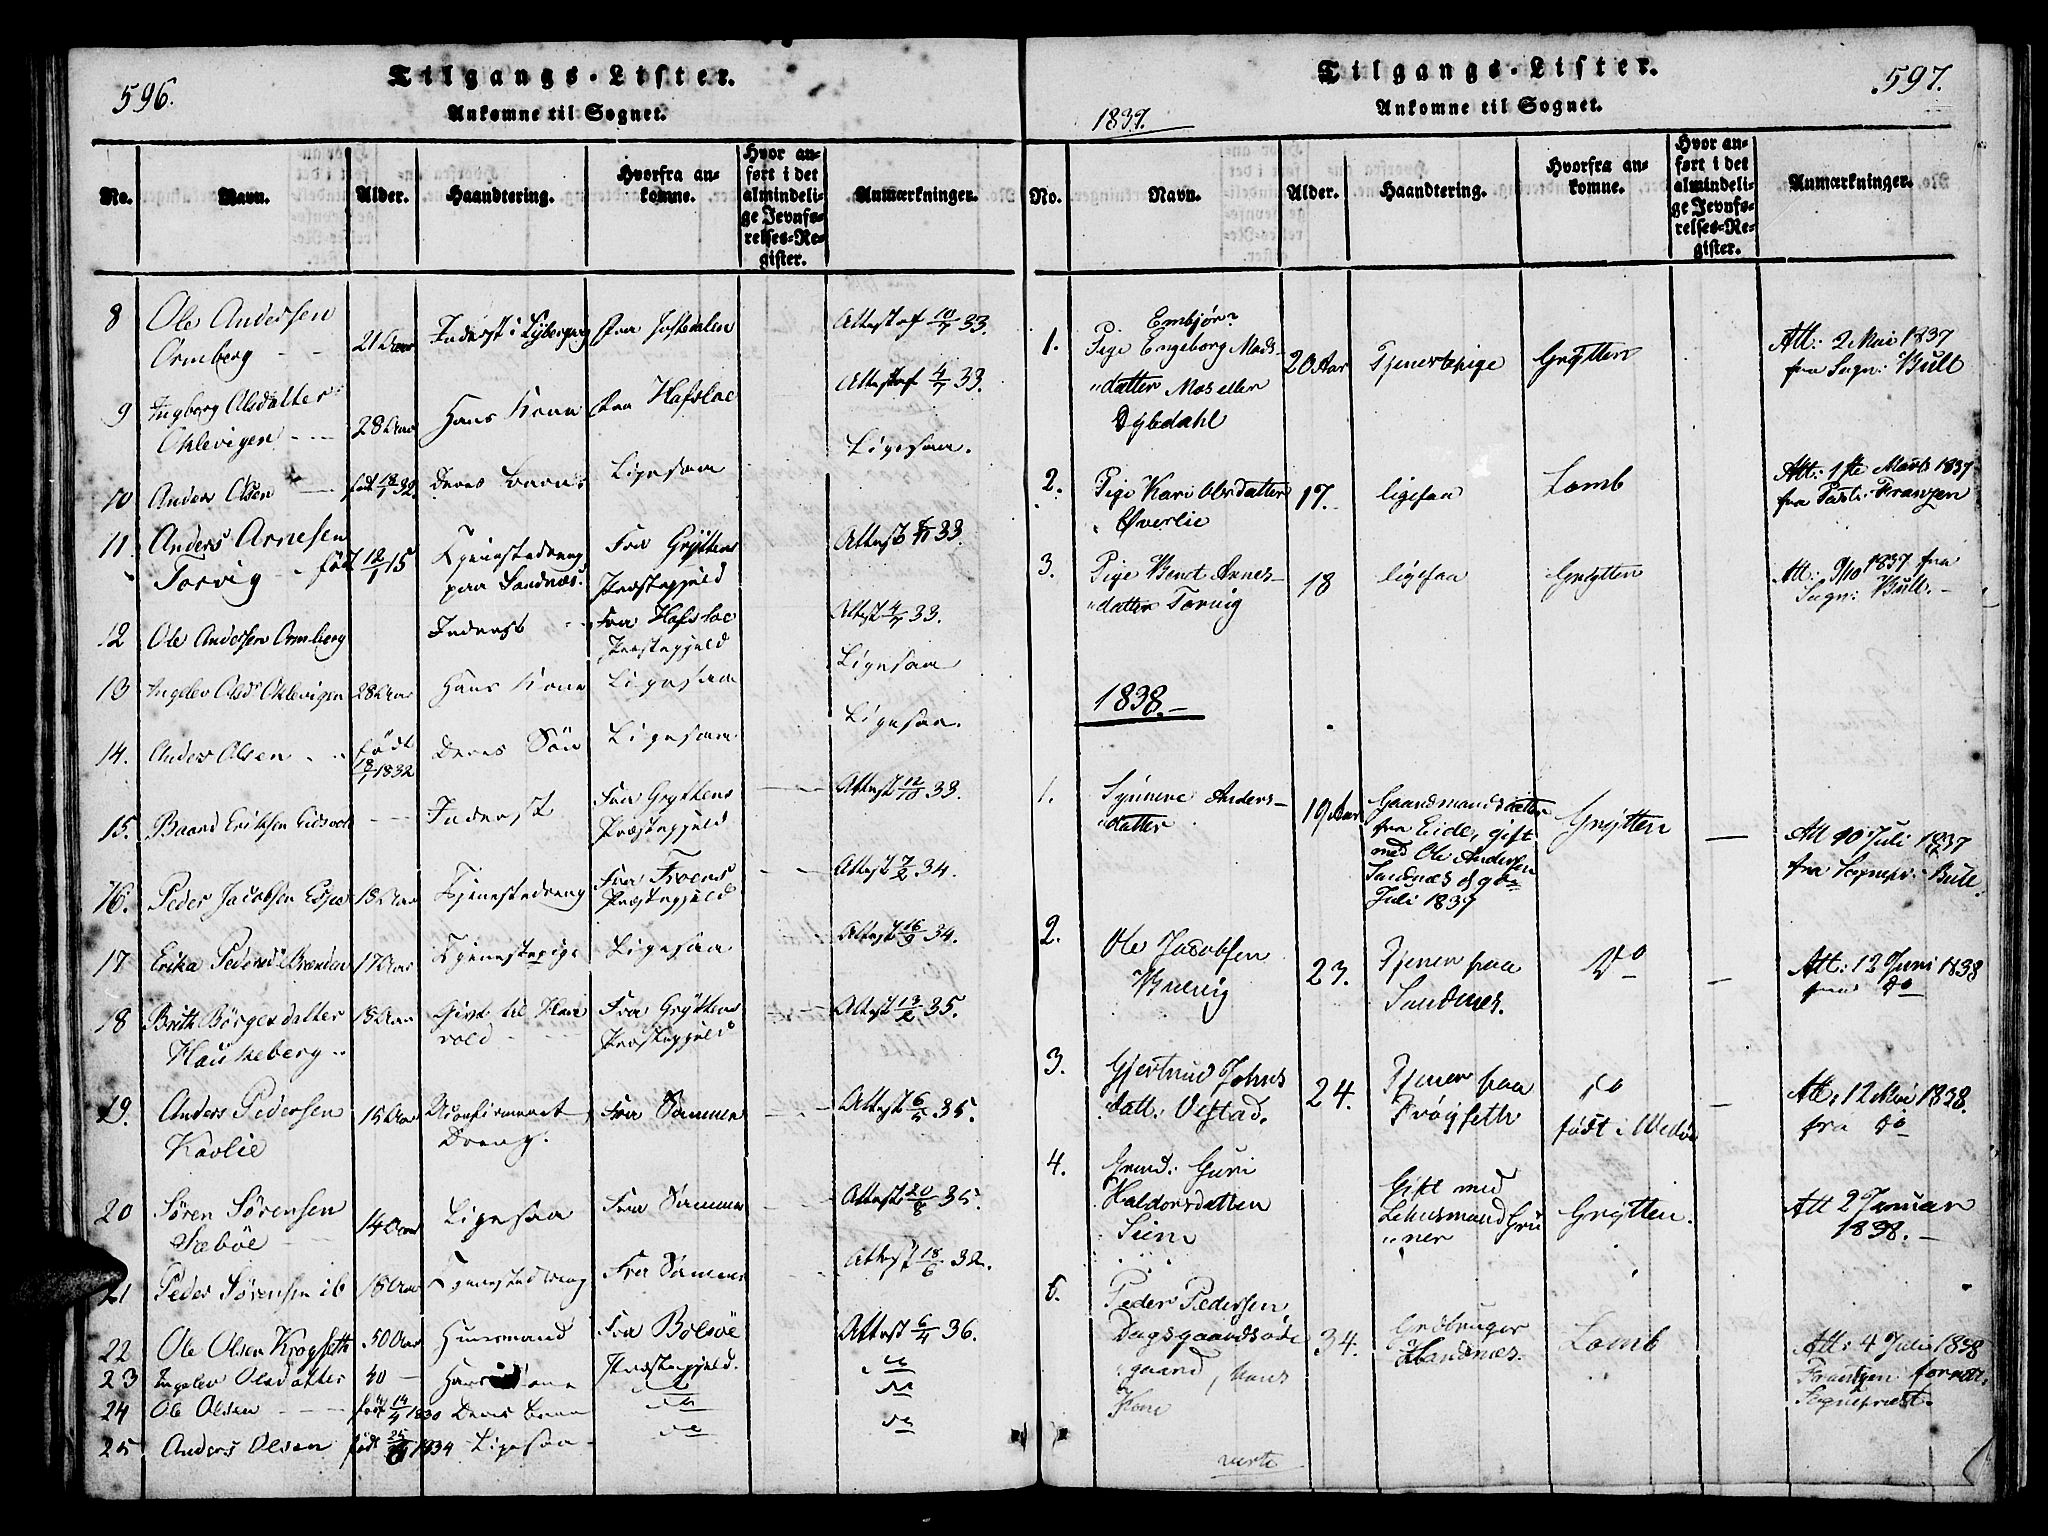 596.
Tilgangs-Lister.
Ankomne til Sognet.
No.
Navn.
Alder.
Haandtering.
Hvorfra an-
komne.
Hvor an-
ført i det
almindeli-
ge Jevnfø-
relses-Re-
gister.
Anmærkninger.
8 Ole Andersen
Ormberg 21 Aar Inderst i fra Jostedalen Attest af 10/7 33.
9 Ingborg Olsdatter
Oklevigen 28 Aar Hans Kone fra Hafsloe Attest af 4/7 33.
10 Anders Olsen født 18/1 32 Deres Barn Ligesaa Ligesaa.
11 Anders Arnesen
Torvig født 12/1 15 Tjenestedreng
paa Sandnæs. Fra Gryttens
Præstegjeld Attest 33.
12 Ole Andersen Ormberg Inderst Fra Hafsloe
Præstegjeld Attest 4/7 33.
13 Ingelev Olsd. Oklevigen 28 Aar Hans Kone Ligesaa Ligesaa
14. Anders Olsen født
18/1 1832 Deres Søn Ligesaa Ligesaa.
15. Baard Eriksen Inderst Fra Gryttens
Præstegjeld Attest 12/10 33.
16. Peder Jacobsen 18 Aar Tjenestedreng Fra Froens
Præstegjeld Attest 7/2 34.
17 Erika Pedersd. Brænden 17 Aar Tjenestepige Ligesaa Attest 16/9 34.
18 Brith Børgesdatter
Haukeberg 18 Aar Givt til
vold Fra Gryttens
Præstegjeld Attest 13/2 35.
19. Anders Pedersen
Kavlie 15 Aar Uconfirmeret
Dreng. Fra Attest 35.
20 Søren Sørensen
Sæbøe 14 Aar Ligesaa Fra Attest 20/8 35.
21 Peder Sørensen ib 18 Aar Tjenestedreng Fra Attest 18/6 32.
22 Ole Olsen Krogseth 50 Aar Huusmand Fra Bolsøe
Præstegjeld. Attest 6/4 36.
23 Ingelev Olsdatter 40 Hans Kone
24 Ole Olsen født 14/4 1830 Deres Barn
25 Anders Olsen født 1834 Ligesaa
597.
Tilgangs-Lister.
Ankomne til Sognet.
1837.
No.
Navn.
Alder.
Haandtering.
Hvorfra an-
komne.
Hvor an-
ført i det
almindeli-
ge Jevnfø-
relses-Re-
gister.
Anmærkninger.
1. Embjør?
Pige Engeborg Mads-
datter Moseller
Dybdahl 20 Aar Tjenestepige Grytten Att: 2 Mai 1837
fra Sogn: Bull
2. Pige Kari Olsdatter
Øverlie 17. ligesaa Lomb Att: 1ste Marts 1837
fra Past: Franzen
3. Pige Berit Arnes-
datter Torvig 18 ligesaa Grytten Att: 9/10 1837 fra
Sogn: Bull.
1838.
1. Synneve Anders-
datter 19 Aar Gaardmandsdatter
fra Eide, gift
med Ole Andersen
Sandnæs d
Juli 1837 Grytten Att 10 Juli 1837
fra Sognepr: Bull.
2. Ole Jacobsen
23. Tjener paa
Sandnes. Do Att: 12 Juni 1838
fra Do
3. Gjertrud Johns
datt: Vestad. 24. Tjener paa
Frøyseth Do
født i Att: 12 Mai 1838.
fra Do
4. Guri
Haldorsdatter
Gift med
Lehnsmand Grü
ner Grytten. Att 2 Januar
1838.
5. Peder Pedersen
Dagsgaardsøde
gaard, hans
Kone 34. Grdbruger
Sandnæs. Lomb Att: 4 Juli 1838
Frantzen forrett.
Sognepræst.
verte